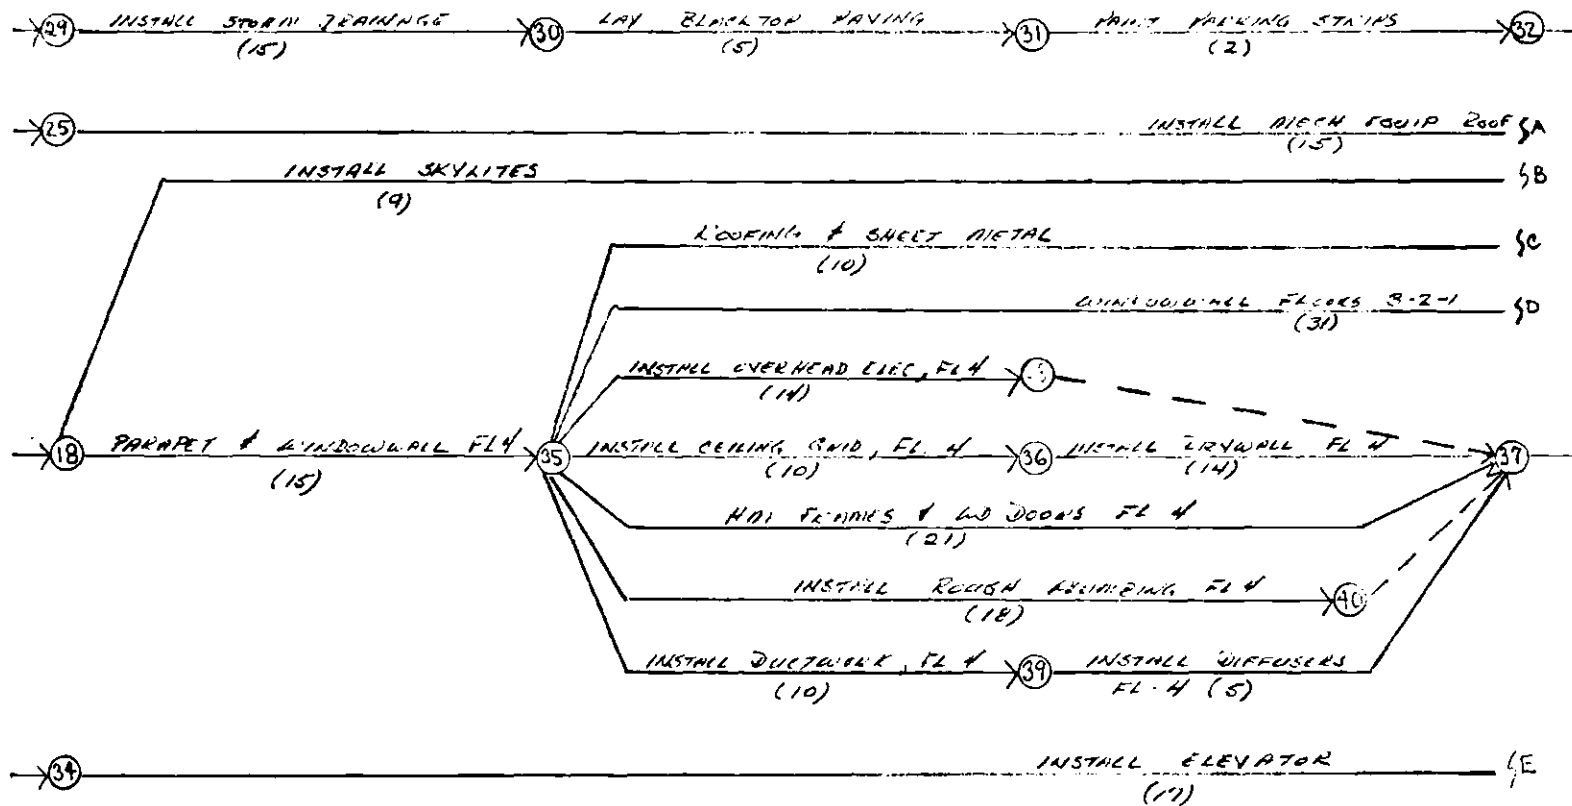 29 INSTALL STORM DRAINAGE 30 LAY BLACKTOP PAVING 31 PAINT PARKING STRIPS 32
(15) (5) (2)
25 INSTALL MECH EQUIP ROOF A
(15)
INSTALL SKYLITES B
(9)
ROOFING & SHEET METAL C
(10)
WINDOWWALL FLOORS 3-2-1 D
(31)
INSTALL OVERHEAD ELEC, FL 4
(14)
18 PARAPET & WINDOWWALL FL 4 35 INSTALL CEILING GRID, FL. 4 36 INSTALL DRYWALL FL 4 37
(15) (10) (14)
HM FRAMES & WD DOORS FL 4
(21)
INSTALL ROUGH PLUMBING FL 4 40
(18)
INSTALL DUCTWORK, FL 4 39 INSTALL DIFFUSERS
(10) FL. 4 (5)
34 INSTALL ELEVATOR E
(17)